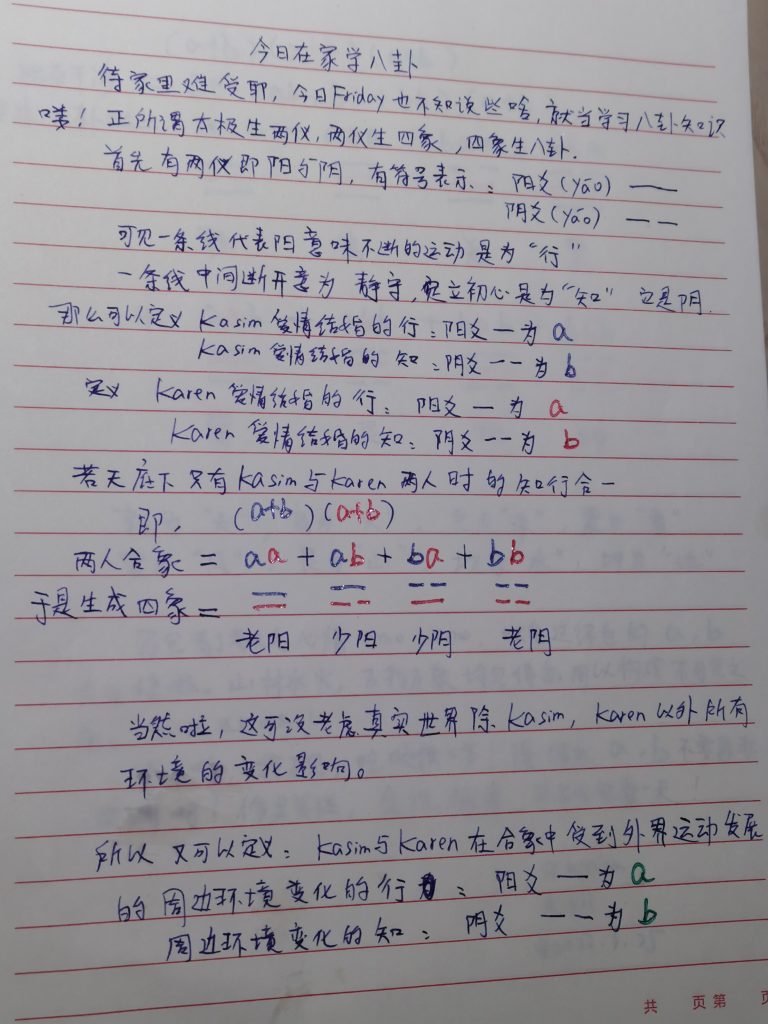 今日在家学八卦
待家里难受耶,今日Friday也不知说些啥,就当学习八卦知识
噗!正所谓太极生两仪,两仪生四象,四象生八卦.
首先有两仪即阳与阴,有符号表示:阳爻(yáo) —
阴爻(yáo) – –
可见一条线代表阳意味不断的运动是为“行”
一条线中间断开意为 静守,定立初心是为“知” 它是阴.
那么可以定义 Kasim 爱情结婚的行:阳爻 — 为 a
Kasim 爱情结婚的 知:阴爻 – – 为 b
定义 Karen 爱情结婚的 行: 阳爻 — 为 a
Karen 爱情结婚的知: 阴爻 – – 为 b
若天底下只有Kasim与Karen两人时的知行合一
即, (a+b)(a+b)
两人合象 = aa + ab + ba + bb
于是生成四象 =
老阳 少阳 少阴 老阴
当然啦,这可没考虑真实世界除 Kasim, Karen 以外所有
环境的变化影响。
所以 又可以定义: Kasim与Karen在合象中受到外界运动发展
的 周边环境变化的行 : 阳爻 — 为 a
周边环境变化的知: 阴爻 – – 为 b
共 页 第 页